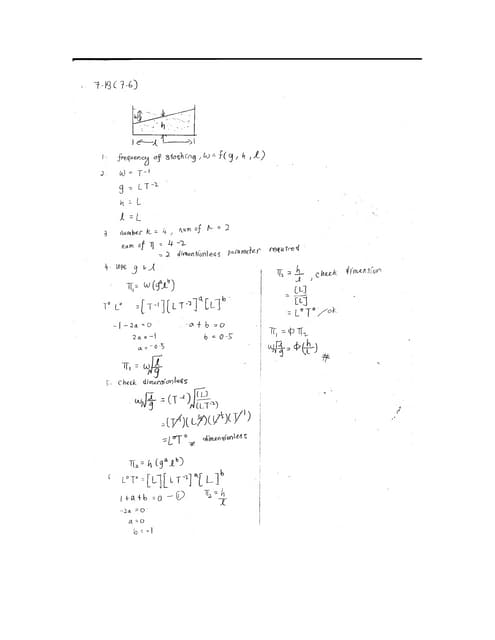 7.19 (7.6)
h
l
1. frequency of sloshing, ω = f(g, h, l)
2. ω = T⁻¹
g = LT⁻²
h = L
l = L
3. number k = 4, num of r = 2
num of π = 4-2
= 2 dimentionless parameter required
4. use g & l
π₁ = ω(gᵃlᵇ)
T° L° = [T⁻¹][LT⁻²]ᵃ[L]ᵇ
-1-2a=0 a+b=0
2a=-1 b=0.5
a=-0.5
π₁ = ω√(l/g)
5. Check dimensionless
ω√(l/g) = (T⁻¹)√((L)/(LT⁻²))
= L°T° dimensionless
π₂ = h(gᵃlᵇ)
6 L°T° = [L][LT⁻²]ᵃ[L]ᵇ
1+a+b=0 -① π₂ = h/l
-2a=0
a=0
b=-1
π₂ = h/l, check dimension
= [L]/[L]
= L°T° / ok
π₁ = Φπ₂
ω√(l/g) = Φ(h/l) #